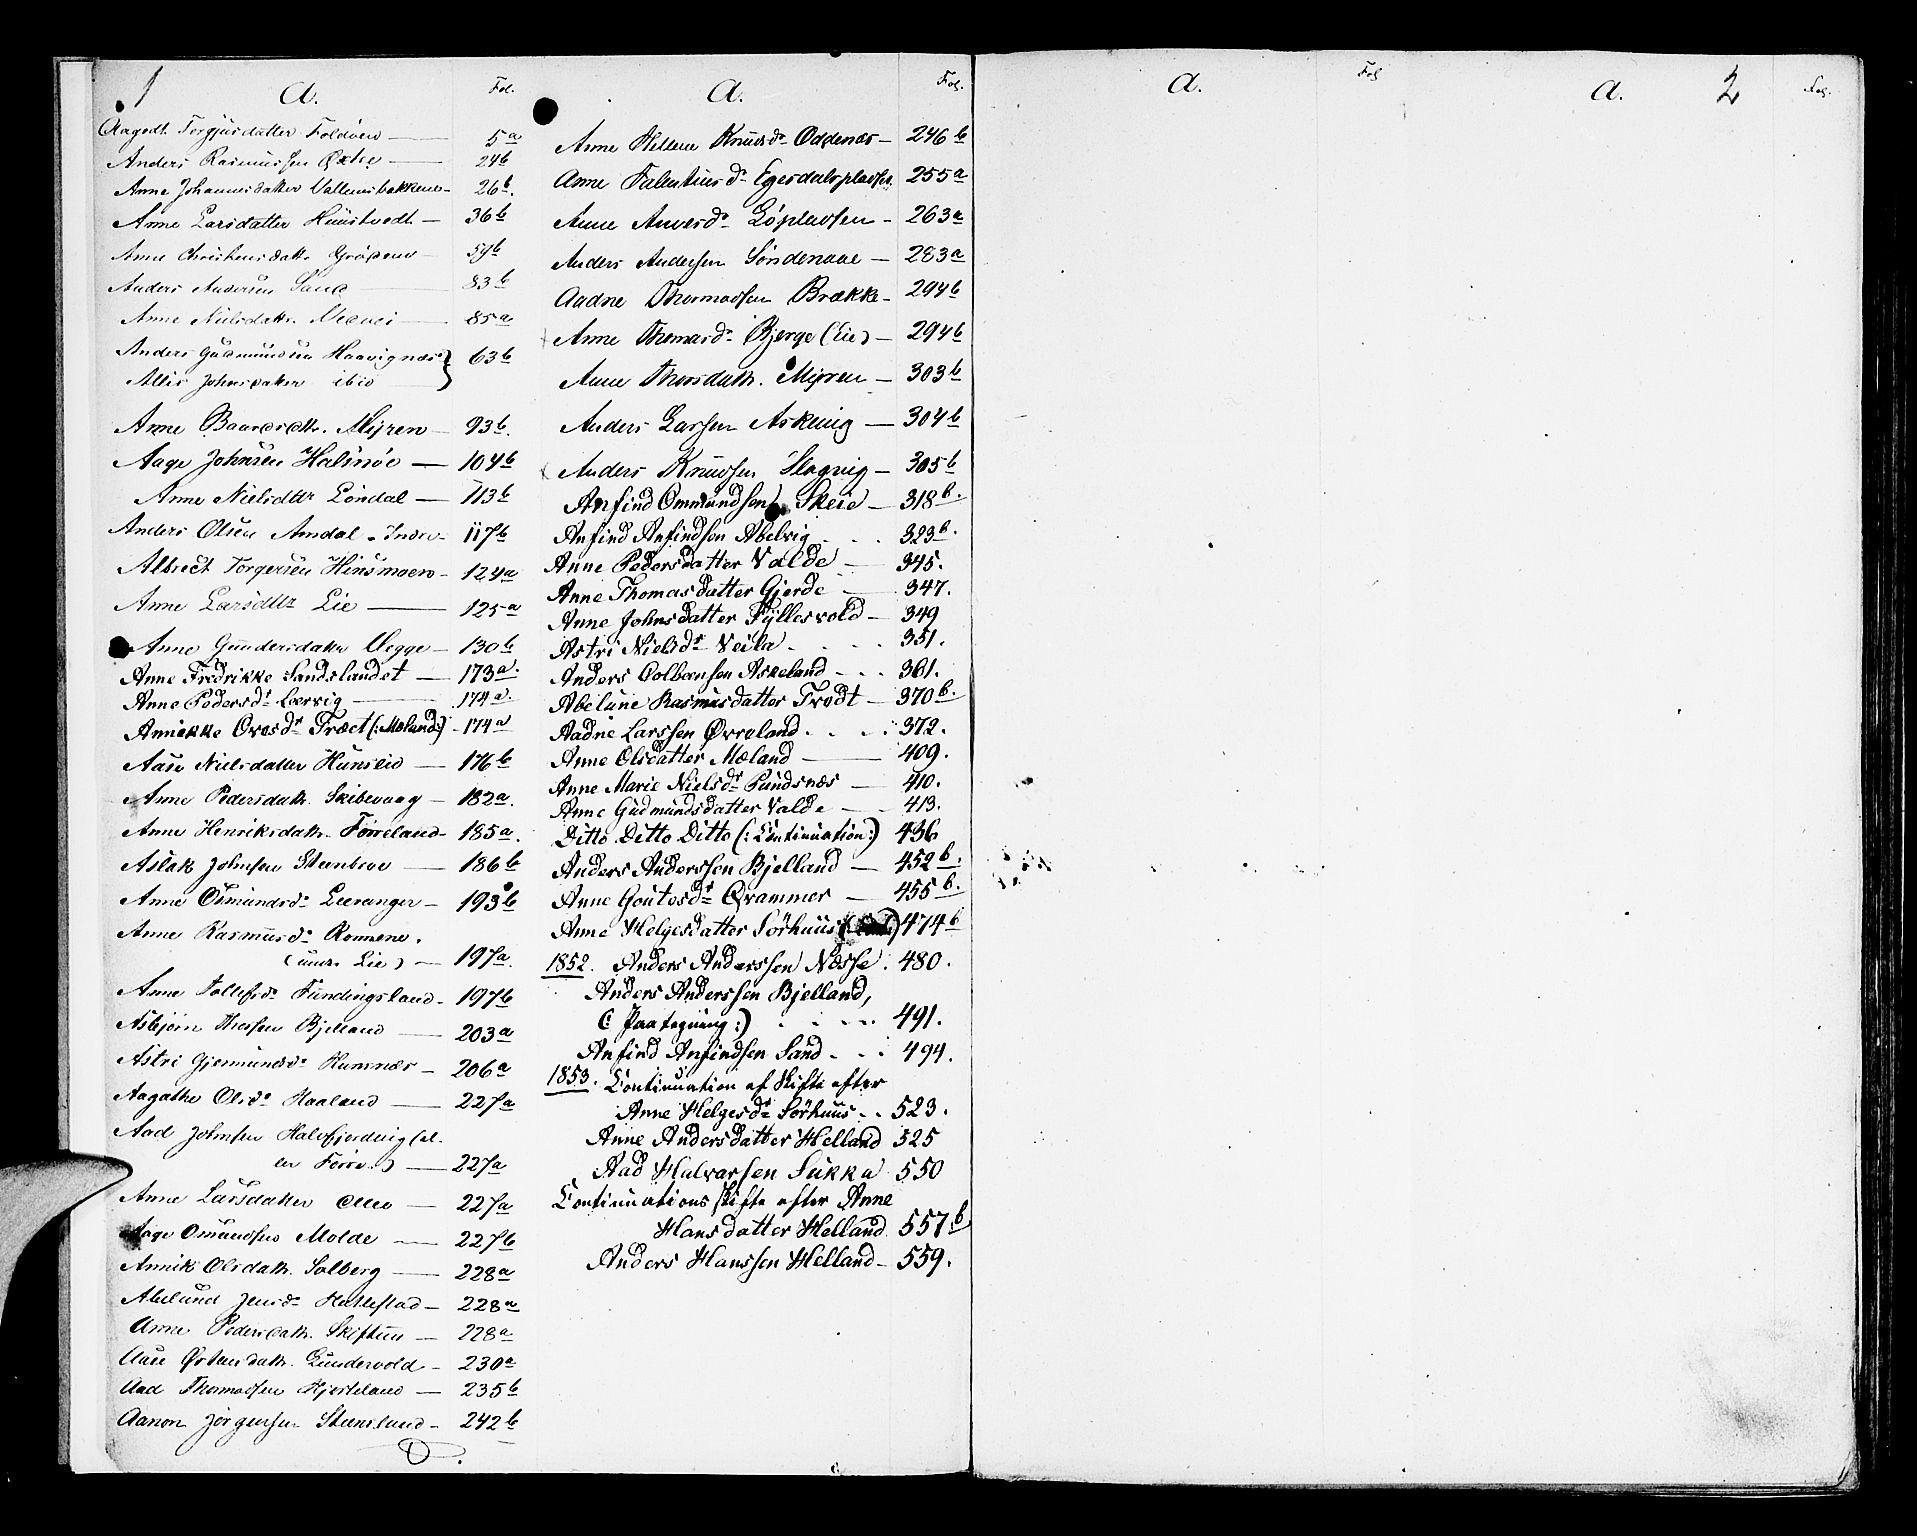 1
A. Fol.
Aagedt. Torgjusdatter Foldöen — 5a
Anders Rasmussen Østbø — 24b
Anne Johannesdatter Vallemsbakken - 26b.
Anne Larsdatter Huustvedt — 36b
Anne Christensdattr — 59b
Anders Andersen Sand — 83b
Anne Nielsdattr. — 85a
Anders Gudmundsen Haavignæs } 63b
Allis Johnsdatter ibid }
Anne Baardsdttr. Myren — 93b.
Aage Johnsen Halsnöe — 104b
Anne Nielsdttr Løndal — 113b
Anders Olsen Amdal - Indre - 117b
Albrect Torgersen Hinsmoen - 124a
Anne Larsdttr Lie — 125a
Anne Gundersdatter Vegge — 130b
Anne Fredrikke Sandslandet — 173a.
Anne Pedersdr Lervig — 174a.
Annikke Ovesdr Træet (: Mæland:) - 174a
Aase Nielsdatter Hunseid — 176b
Anne Pedersdattr. Skibevaag — 182a.
Anne Henriksdattr. Førreland - 185a.
Aslak Johnsen Steenbroe — 186b
Anne Osmundsdr Leeranger — 193b
Anne Rasmusdr Rønnene.
(under Lie) — 197a.
Anne Tollefsdr Fundingsland - 197b
Asbjørn Thorsen Bjelland — 203a
Astri Gjermundsdr Hamnær — 206a
Aagathe Olsdr Haaland — 227a
Aad Johnsen Halsfjordvig (el.
ler Førre.) — 227a
Anne Larsdatter — 227a
Aage Osmundsen Molde — 227b
Annik Olsdattr. Solberg — 228a
Abelund Jensdr Hættestad — 228a
Anne Pedersdattr. Skiftun — 228a
Aase Østensdattr. Gundervold - 230a
Aad Thomassen Hjorteland — 235b
Aanon Jörgensen Steensland - 242b
A. Fol.
Anne Hellene Knudsdr Oddenæs — 246b
Anne Falentinsdr Egesdalspladsen 255a
Anne Anversdr Löpladsen - 263a
Anders Andersen Søndenaae — 283a
Aadne Thormodsen Brække - 294b
Anne Thomasdr Bjerge (Lie) — 294b
Anne Thorsdattr. Myren — 303b
Anders Larsen Askevig — 304b
Anders Knudsen Slagvig — 305b
Anfind Ommundsen Skeie — 318b.
Anfind Anfindsen Abelvig . . . 323b.
Anne Pedersdatter Valde — 345.
Anne Thomasdatter Gjerde — 347.
Anne Johnsdatter Fyllesvold — 349
Astri Nielsdr Veila . . . . 351.
Anders Colbensen Askeland . . . 361.
Abelune Rasmusdatter Trodt — 370b.
Aadne Larssen Øvreland . . . . 372.
Anne Olsdatter Mæland — 409.
Anne Marie Nielsdr Pundsnæs — 410.
Anne Gudmundsdatter Valde — 413.
Ditto Ditto Ditto (: Continuation:) 436
Anders Anderssen Bjelland — 452b.
Anne Goutesdr Qvammer — 455b.
Anne Helgesdatter Sörhuus 474b
1852. Anders Anderssen Næsse . 480.
Anders Anderssen Bjelland,
(: Paategning:) . . . . . 491.
Anfind Anfindsen Sand . . . 494.
1853. Continuation af Skifte efter
Anne Helgesdr Sörhuus . . 523.
Anne Andersdatter Helland 525
Aad Halvarsen Sukka 550
Continuations skifte efter Anne
Hansdatter Helland 557b
Anders Hanssen Helland - 559.
A. Fol
A. 2 Fol.